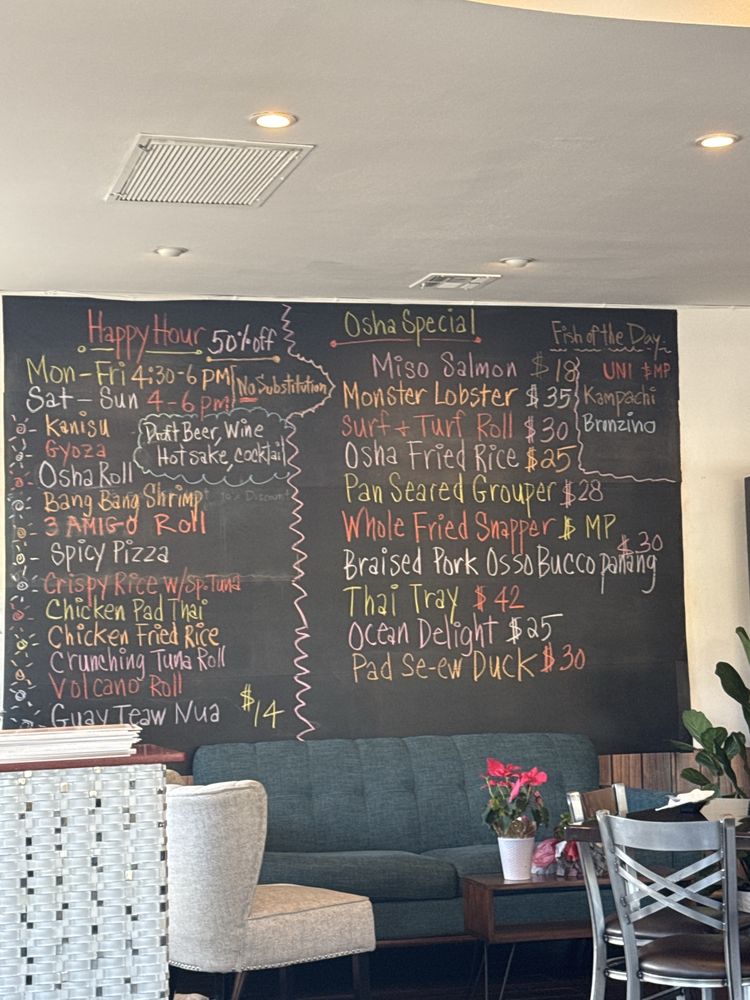 Happy Hour 50% off
Mon-Fri 4:30-6 pm
Sat-Sun 4-6 pm
No Substitution
Kanisu
Gyoza
Osha Roll
Draft Beer, Wine
Hot sake, cocktail
Bang Bang Shrimp
3 AMIGO Roll
Spicy Pizza
Crispy Rice w/Sp.Tuna
Chicken Pad Thai
Chicken Fried Rice
Crunching Tuna Roll
Volcano Roll
Guay Teaw Nua $14
Osha Special
Miso Salmon $18
Monster Lobster $35
Surf + Turf Roll $30
Osha Fried Rice $25
Pan Seared Grouper $28
Whole Fried Snapper $ MP
Braised Pork Osso Bucco panang $30
Thai Tray $42
Ocean Delight $25
Pad Se-ew Duck $30
Fish of the Day
UNI $MP
Kampachi
Bronzino